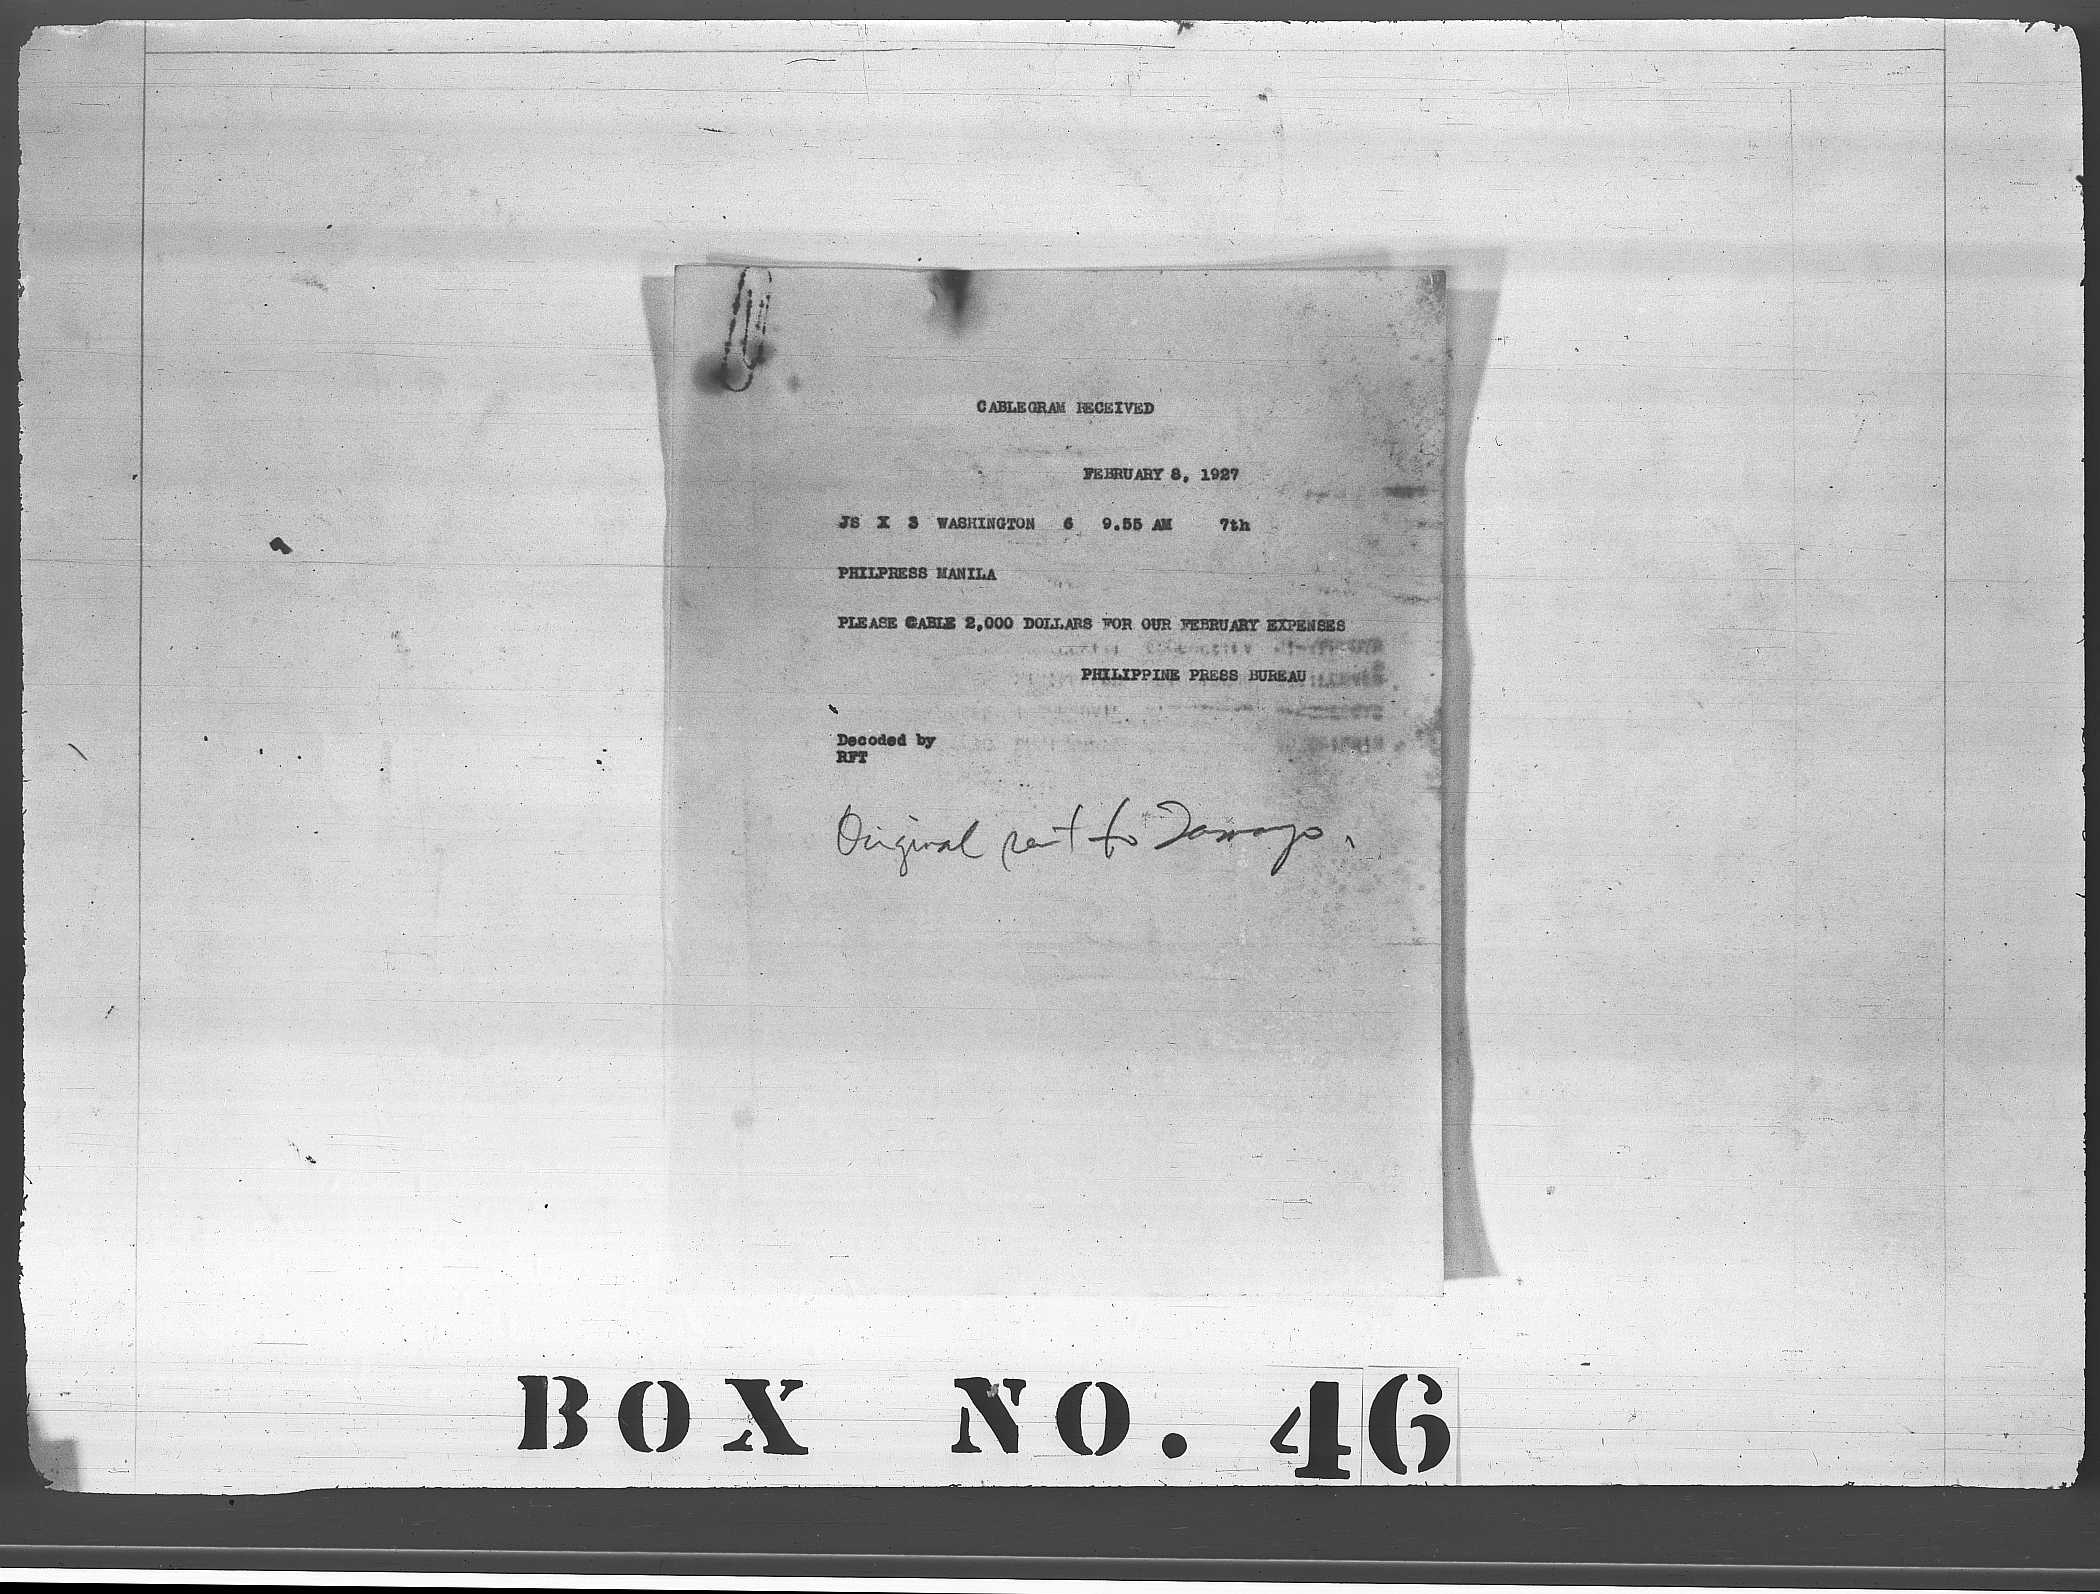 CABLEGRAM RECEIVED
FEBRUARY 8, 1927
JS X 3 WASHINGTON 6 9.55 AM 7th
PHILPRESS MANILA
PLEASE CABLE 2,000 DOLLARS FOR OUR FEBRUARY EXPENSES
PHILIPPINE PRESS BUREAU
Decoded by
RFT
Original sent to
BOX NO. 46